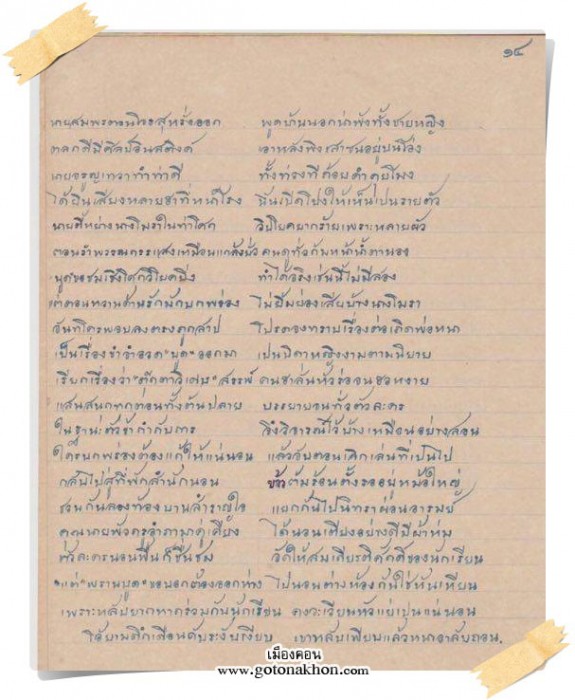 ๑๔
นายสมพรตอนโจรสุหรั่งออก พูดบ้านนอกน่าฟังทั้งชายหญิง
ตลกดีมีศิลป์อินสติงค์ เอาหลังพิงเสาชนอยู่บนโรง
นายจรูญเทวาทำท่าดี ทั้งท่วงทีถ้อยคำคุยโขมง
ได้ยินเสียงหลายฮาที่หน้าโรง นั่นเปิดโปงให้เห็นไปรายตัว
นายศักดิ์อย่างนางโมราในท่าโศก วิปโยคยากร้ายเพราะหลายผัว
ตอนรำพรรณกรรแสงเหมือนแกล้งยั่ว คนดูทั่วกันหน้าน้ำตานอง
พูดชมเชิงโศกวิโยคยิ่ง ทำได้จริงเช่นนี้ไม่มีสอง
แต่ตอนหวานด้านรักมักบกพร่อง ไม่ยิ้มย่องเสียบ้างนางโมรา
จันทโครพจบลงตรงถูกสาป โปรดจงทราบเรื่องต่อเถิดพ่อหนา
เป็นเรื่องขำรำอวด "บูด" ออกมา เป็นบิดาหญิงงามตามนิยาย
เรียกเรื่องว่า "ตุ๊กตาวิเศษ" สรรพ์ คนฮาลั่นหัวร่องอนขวนขวาย
แสนสนุกทุกตอนทั้งต้นปลาย บรรยายจนทั่วตัวละคร
ในฐานะตัวข้ากำกับการ จึงวิจารณ์ไว้บ้างเหมือนอย่างสอน
ใครบกพร่องต้องแก้ให้แน่นอน แล้วจับตอนเลิกเล่นที่เป็นไป
กลับไปสู่ที่พักสำนักนอน ข้าวต้มร้อนตั้งรออยู่หม้อใหญ่
ชวนกันลองท้องบานสำราญใจ แยกกันไปนิทราผ่อนอารมย์
คุณนายพัวครูอำภามาคู่เคียง ได้นอนเตียงอย่างดีมีผ้าห่ม
ตัวละครนอนพื้นก็ชื่นชม จัดให้สมเกียรติศักดิ์ของนักเรียน
"แต่" พรานบูด" ขอบอกต้องออกห่าง ไปนอนต่างห้องกันใช่หันเหียน
เพราะหลับยากหากร่วมกับนักเรียน คงวะเวียนหัวแยเป็นแน่นอน
โอ้ยามดึกเดือนดับระงับเงียบ เขาหลับเพียบแล้วหนาอาลัยถอน.
เมืองคอน
www.gotonakhon.com